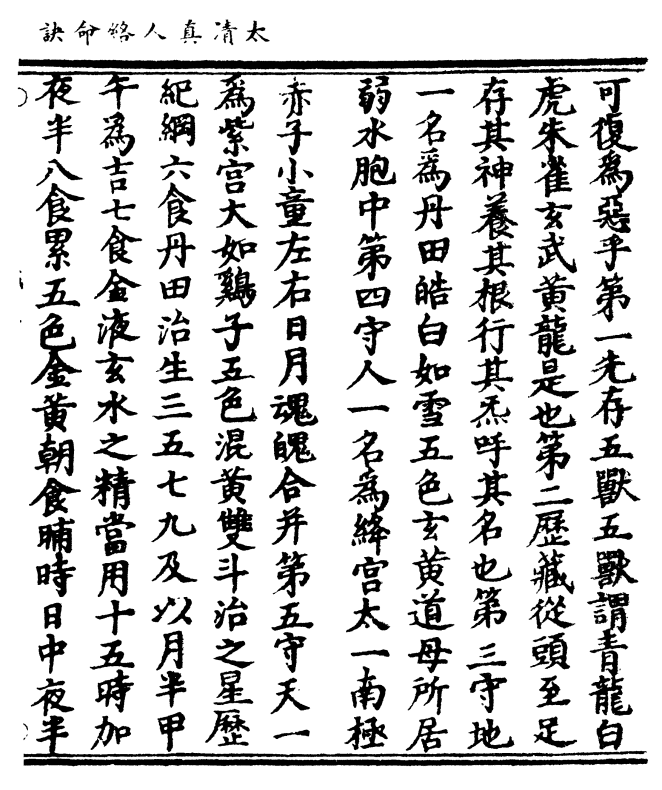 太清真人絡命訣
可復爲惡乎第一先存五獸五獸謂青龍白
虎朱雀玄武黃龍是也第二歷藏從頭至足
存其神養其根行其炁呼其名也第三守地
一名爲丹田皓白如雪五色玄黃道母所居
弱水胞中第四守人一名爲絳宮太一南極
赤子小童左右日月魂魄合并第五守天一
爲紫宮大如鷄子五色混黃雙斗治之星歷
紀綱六食丹田治生三五七九及以月半甲
午爲吉七食金液玄水之精當用十五時加
夜半八食累五色金黃朝食晡時日中夜半